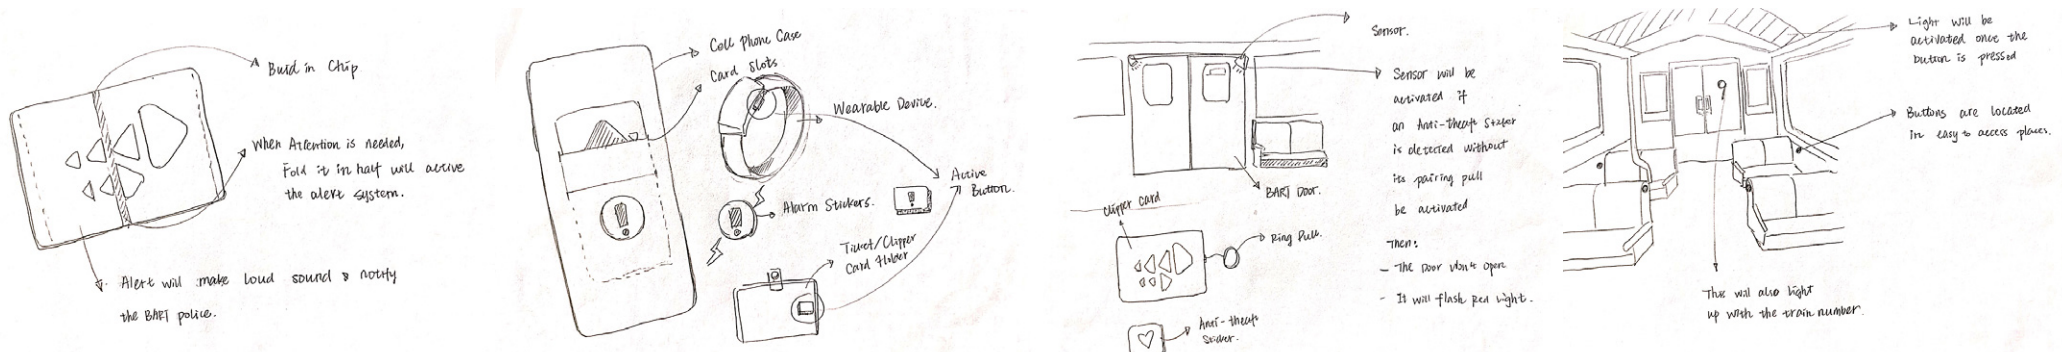 Build in Chip
When Attention is needed,
Fold it in half will active
the alert system.
Alert will make loud sound & notify
the BART police.
Cell Phone Case
Card Slots
Wearable Device.
Active
Button.
Alarm Stickers.
Ticket/Clipper
Card Holder
Sensor.
Sensor will be
activated if
an Anti-theft Sticker
is detected without
its pairing pull
be activated
Then:
- The Door won't open
- It will flash Red Light.
BART Door.
Clipper Card
Ring Pull.
Anti-theft
Sticker.
Light will be
activated once the
button is pressed
Buttons are located
in easy to access places.
This will also light
up with the train number.